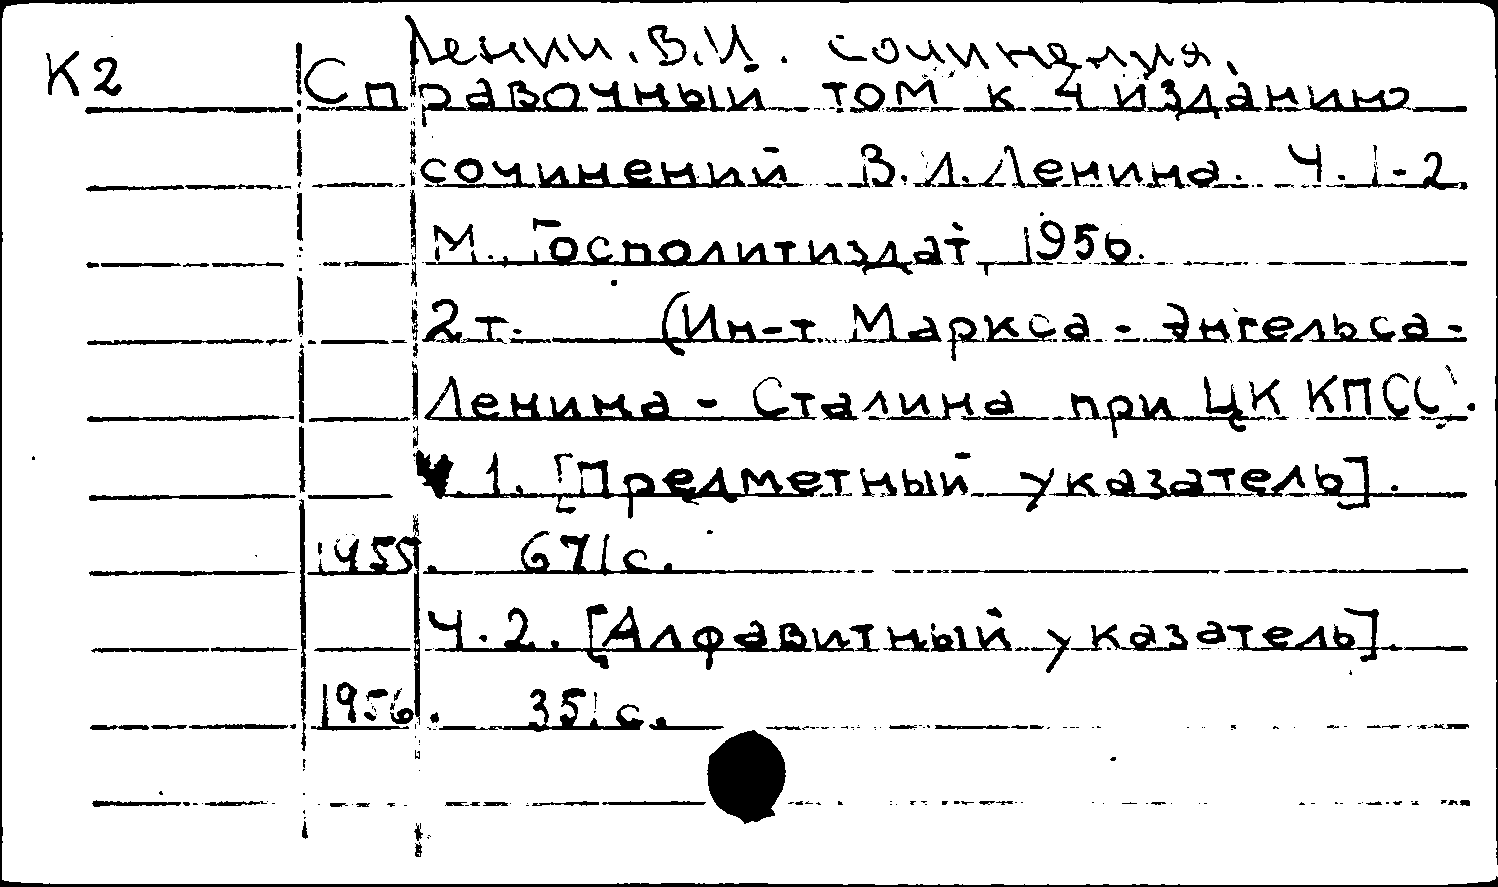 Ленин. В.И. сочинения.
К2 Справочный том к 4 изданию
сочинений В.И.Ленина. Ч. 1-2
М., Госполитиздат, 1956.
2 т. (Ин-т Маркса - Энгельса -
Ленина - Сталина при ЦК КПСС).
Ч. 1. [Предметный указатель].
1955. 671 с.
Ч. 2. [Алфавитный указатель].
1956. 351 с.